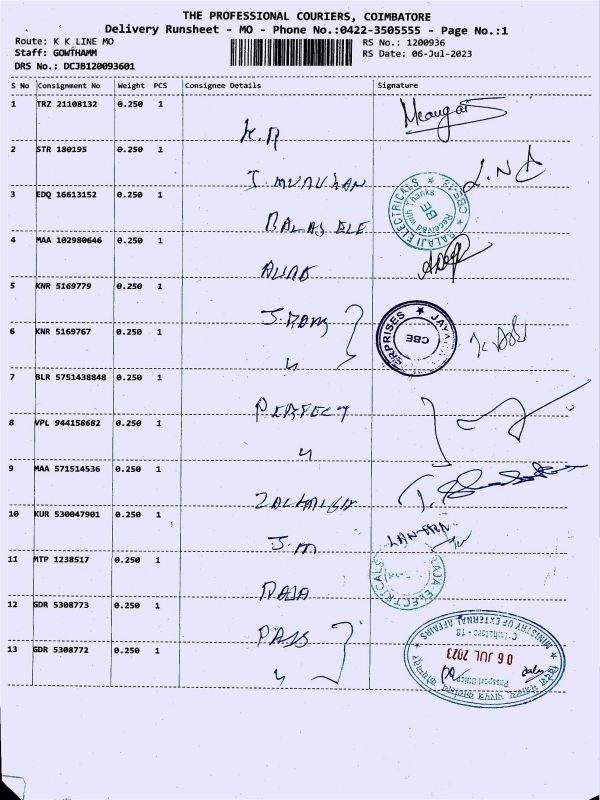 THE PROFESSIONAL COURIERS, COIMBATORE
Delivery Runsheet - MO - Phone No.:0422-3505555 - Page No.:1
Route: K K LINE MO
RS No.: 1200936
Staff: GOWTHAMM
RS Date: 06-Jul-2023
DRS No.: DCJB120093601
S No Consignment No Weight PCS Consignee Details Signature
1 TRZ 21108132 0.250 1
2 STR 180195 0.250 1
3 EDQ 16613152 0.250 1 BALAJI ELE
4 MAA 102980646 0.250 1
5 KNR 5169779 0.250 1
6 KNR 5169767 0.250 1
7 BLR 5751438848 0.250 1 PERFECT
8 VPL 944158682 0.250 1
9 MAA 571514536 0.250 1
10 KUR 530047901 0.250 1 J.M
11 MTP 1238517 0.250 1 RAJA
12 GDR 5308773 0.250 1 PASS
13 GDR 5308772 0.250 1
BALAJI ELECTRICALS ★ CBE-18 ★
Received with Thanks
CBE
MINISTRY OF EXTERNAL AFFAIRS
Coimbatore - 18
06 JUL 2023
Passport Office